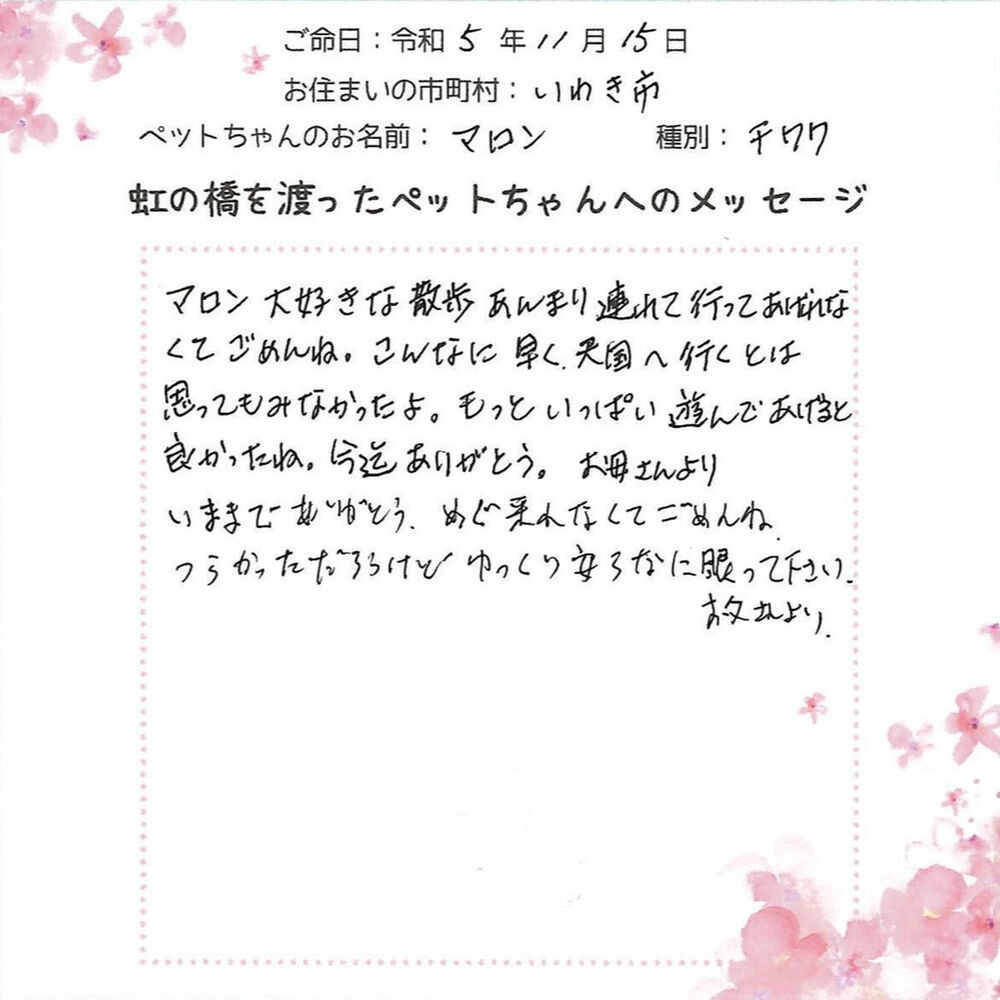 ご命日：令和5年11月15日
お住まいの市町村：いわき市
ペットちゃんのお名前：マロン 種別：チワワ
虹の橋を渡ったペットちゃんへのメッセージ
マロン大好きな散歩あんまり連れて行ってあげれな
くてごめんね。こんなに早く、天国へ行くとは
思ってもみなかったよ。もっといっぱい遊んであげると
良かったね。今迄ありがとう。お母さんより
いままでありがとう、めぐ来れなくてごめんね、
つらかっただろうけどゆっくり安らなに眠って下さい、
お父さんより、